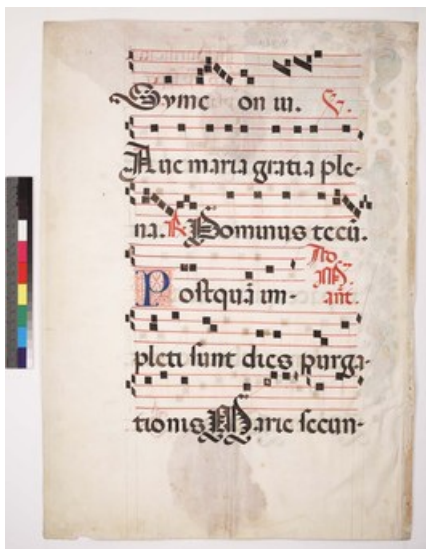 Symeon in. V.
Aue maria gratia ple-
na. R Dominus tecū.
Postquā im-
pleti sunt dies purga-
tionis Marie secun-